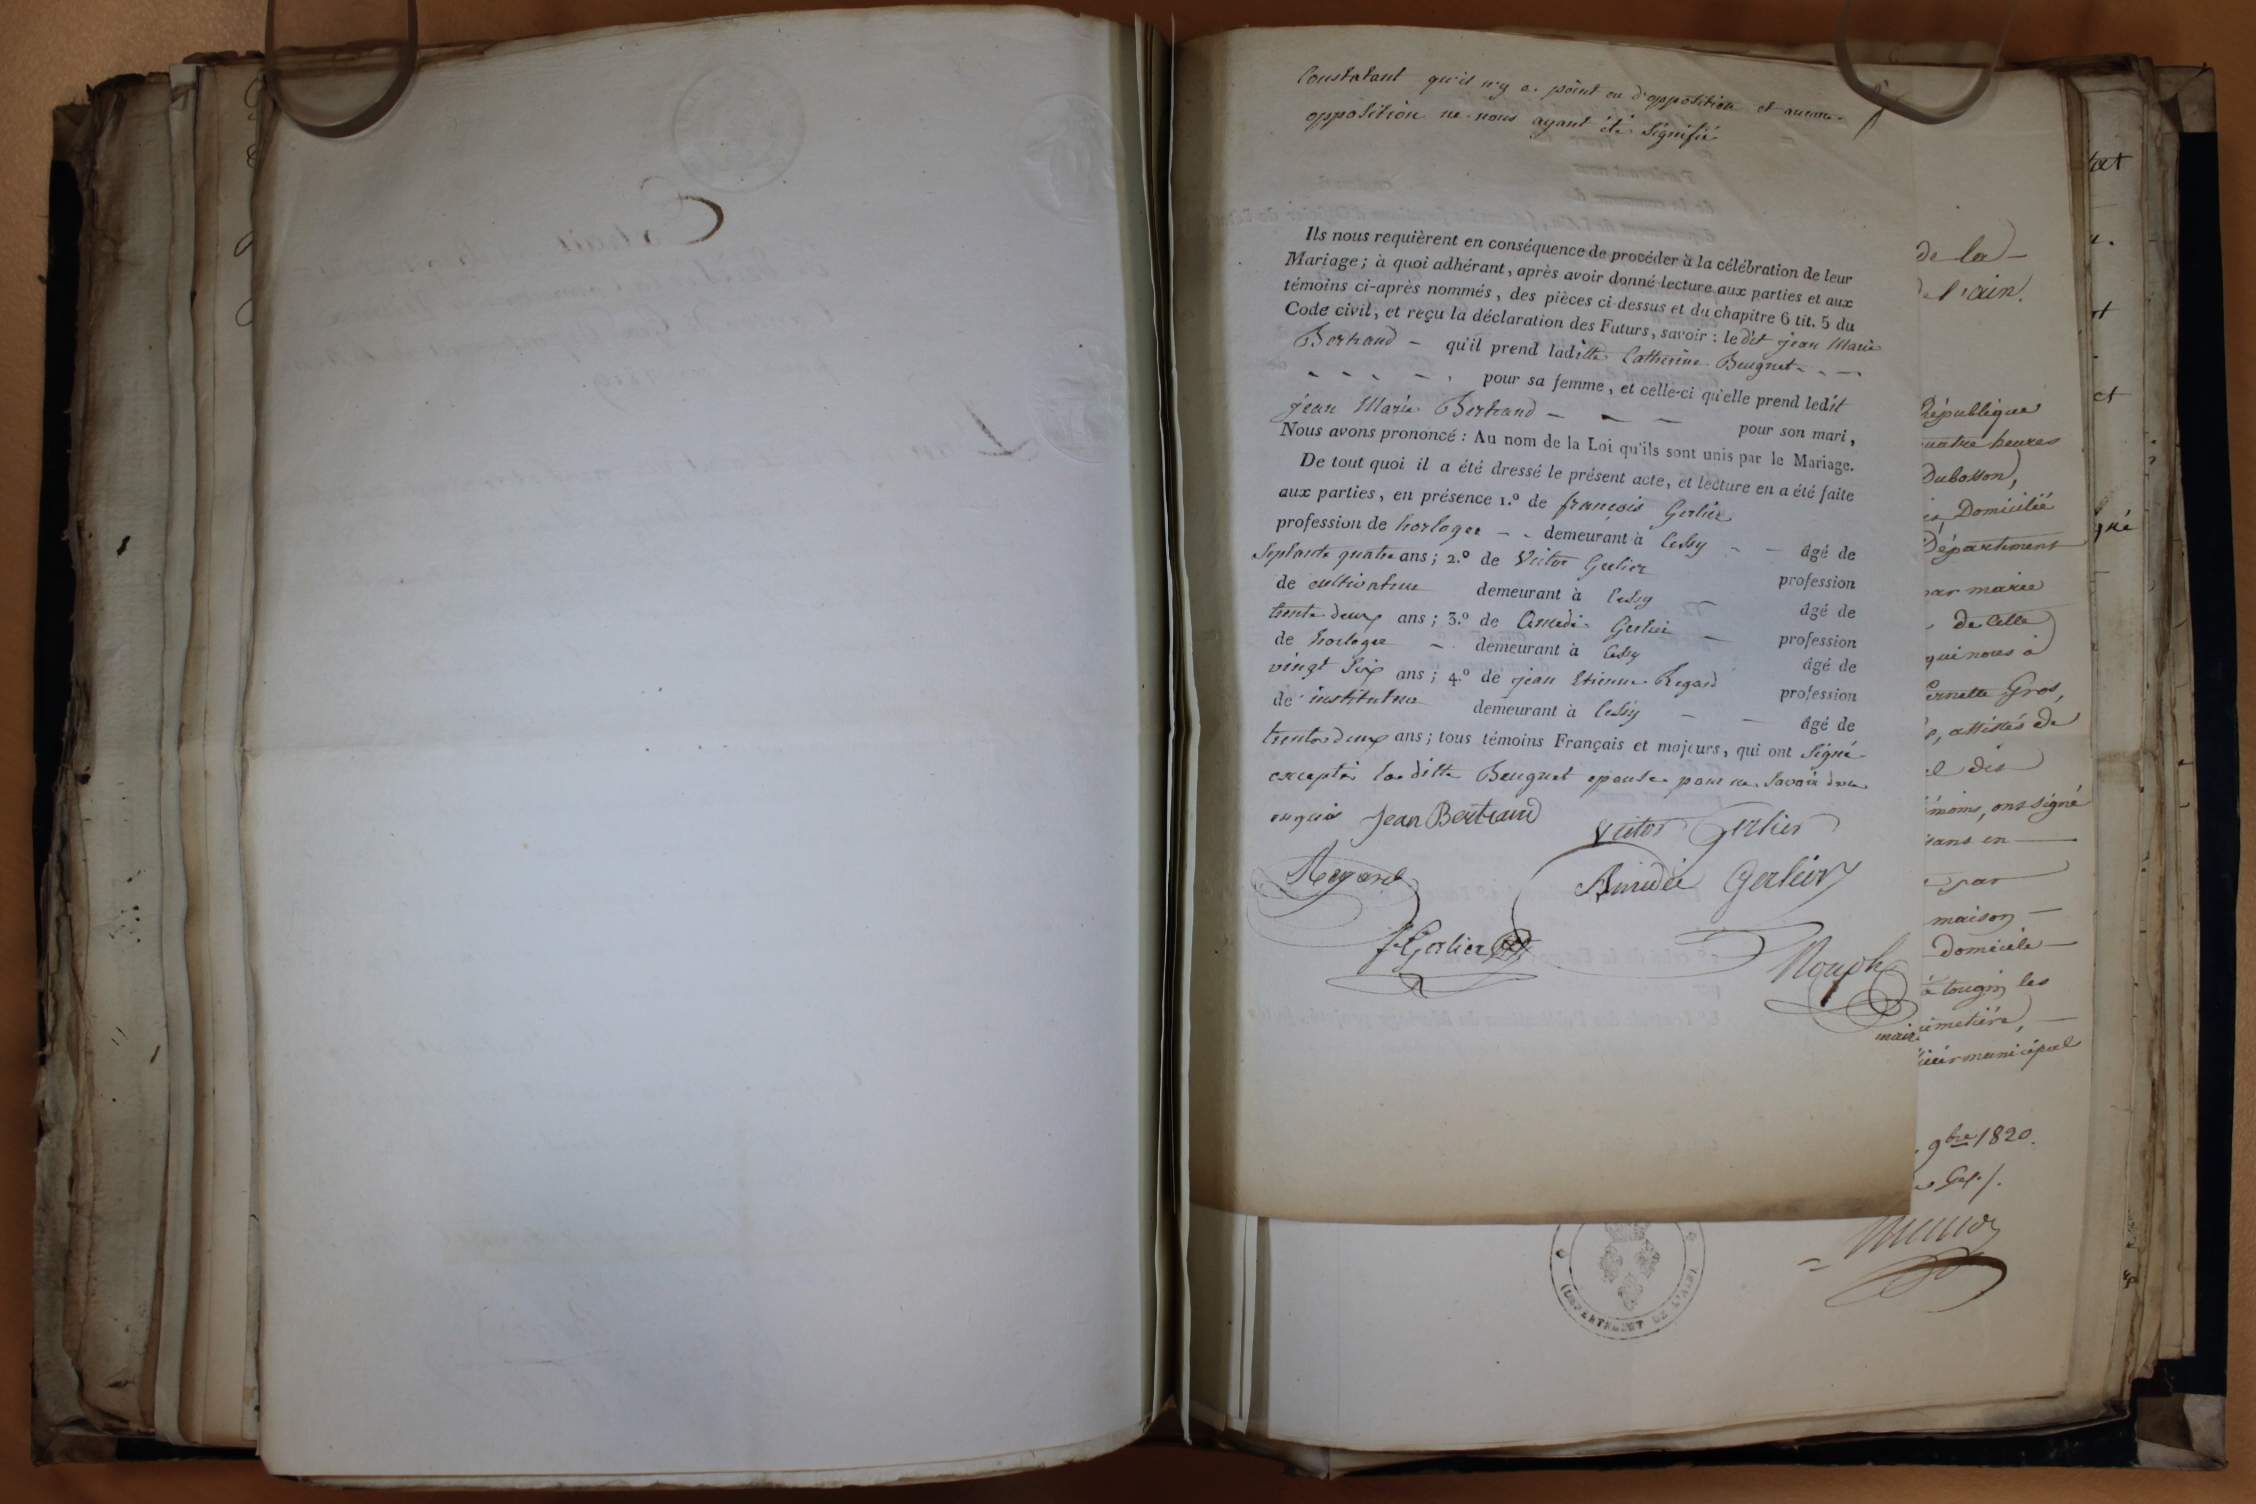 Constatant qu'il n'y a point eu d'opposition et aucune
opposition ne nous ayant été signifié
Ils nous requièrent en conséquence de procéder à la célébration de leur
Mariage; à quoi adhérant, après avoir donné lecture aux parties et aux
témoins ci-après nommés, des pièces ci-dessus et du chapitre 6 tit. 5 du
Code civil, et reçu la déclaration des Futurs, savoir : le dit jean Marie
Bertrand - qu'il prend laditte Catherine Beugnet
pour sa femme, et celle-ci qu'elle prend ledit
jean Marie Bertrand — — — pour son mari,
Nous avons prononcé : Au nom de la Loi qu'ils sont unis par le Mariage.
De tout quoi il a été dressé le présent acte, et lecture en a été faite
aux parties, en présence 1.º de françois Gerlier
profession de horloger - - demeurant à Cessy - - âgé de
septante quatre ans ; 2.º de Victor Gerlier profession
de cultivateur demeurant à Cessy âgé de
trente deux ans ; 3.º de Amedé Gerlier - profession
de horloger - demeurant à Cessy âgé de
vingt six ans ; 4.º de jean Etienne Regard profession
de instituteur demeurant à Cessy - - âgé de
trente deux ans ; tous témoins Français et majeurs, qui ont signé
excepté la ditte Beugnet epouse pour ne savoir de ce
requis Jean Bertrand
Victor Gerlier
Regard
Amédée Gerlier
f. Gerlier
maire
de la
de l'ain.
République
quatre heures
Dubosson,
Domicilié
Département
par marie
de Celle
qui nous à
Pernette Gros,
assistés de
dis
témoins, ont signé
en
par
maison
domicile
à tougin les
cimetière,
municipal
9bre 1820.
Gex
DÉPARTEMENT DE L'AIN
tat
et
gné
Extrait